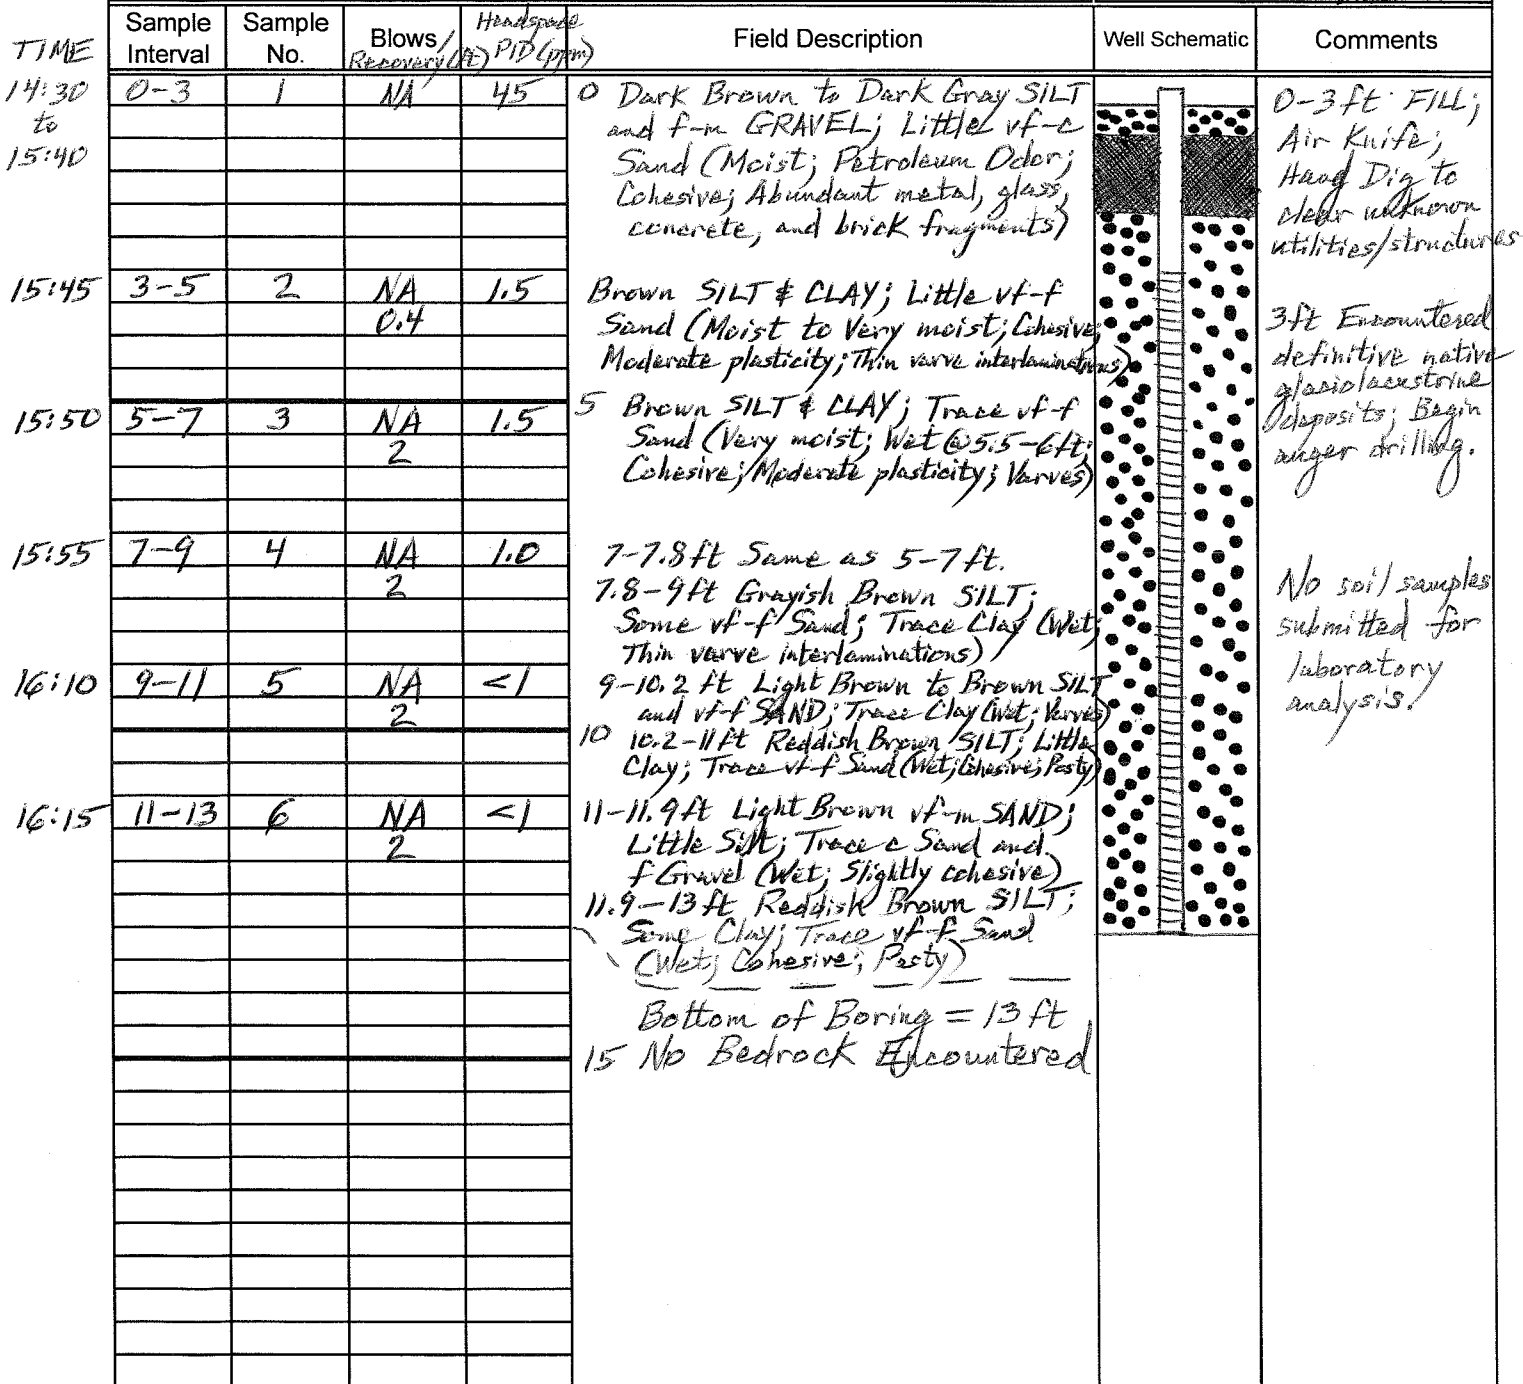 TIME
Sample Interval
Sample No.
Blows/ Recovery (ft)
Headspace PID (ppm)
Field Description
Well Schematic
Comments
14:30
to
15:40
0-3 1 NA 45
0 Dark Brown to Dark Gray SILT
and f-m GRAVEL; Little vf-c
Sand (Moist; Petroleum Odor;
Cohesive; Abundant metal, glass,
concrete, and brick fragments)
0-3 ft FILL;
Air Knife;
Hand Dig to
clear unknown
utilities/structures
15:45 3-5 2 NA 1.5
0.4
Brown SILT & CLAY; Little vf-f
Sand (Moist to Very moist; Cohesive;
Moderate plasticity; Thin varve interlaminations)
3ft Encountered
definitive native
glaciolacustrine
deposits; Begin
auger drilling.
15:50 5-7 3 NA 1.5
2
5 Brown SILT & CLAY; Trace vf-f
Sand (Very moist; Wet @ 5.5-6ft;
Cohesive; Moderate plasticity; Varves)
15:55 7-9 4 NA 1.0
2
7-7.8ft Same as 5-7 ft.
7.8-9ft Grayish Brown SILT;
Some vf-f Sand; Trace Clay (Wet;
Thin varve interlaminations)
No soil samples
submitted for
laboratory
analysis.
16:10 9-11 5 NA <1
2
9-10.2 ft Light Brown to Brown SILT
and vf-f SAND; Trace Clay (Wet; Varves)
10 10.2-11ft Reddish Brown SILT; Little
Clay; Trace vf-f Sand (Wet; Cohesive; Pasty)
16:15 11-13 6 NA <1
2
11-11.9ft Light Brown vf-m SAND;
Little Silt; Trace c Sand and
f Gravel (Wet; Slightly cohesive)
11.9-13 ft Reddish Brown SILT;
Some Clay; Trace vf-f Sand
(Wet; Cohesive; Pasty)
Bottom of Boring = 13 ft
15 No Bedrock Encountered